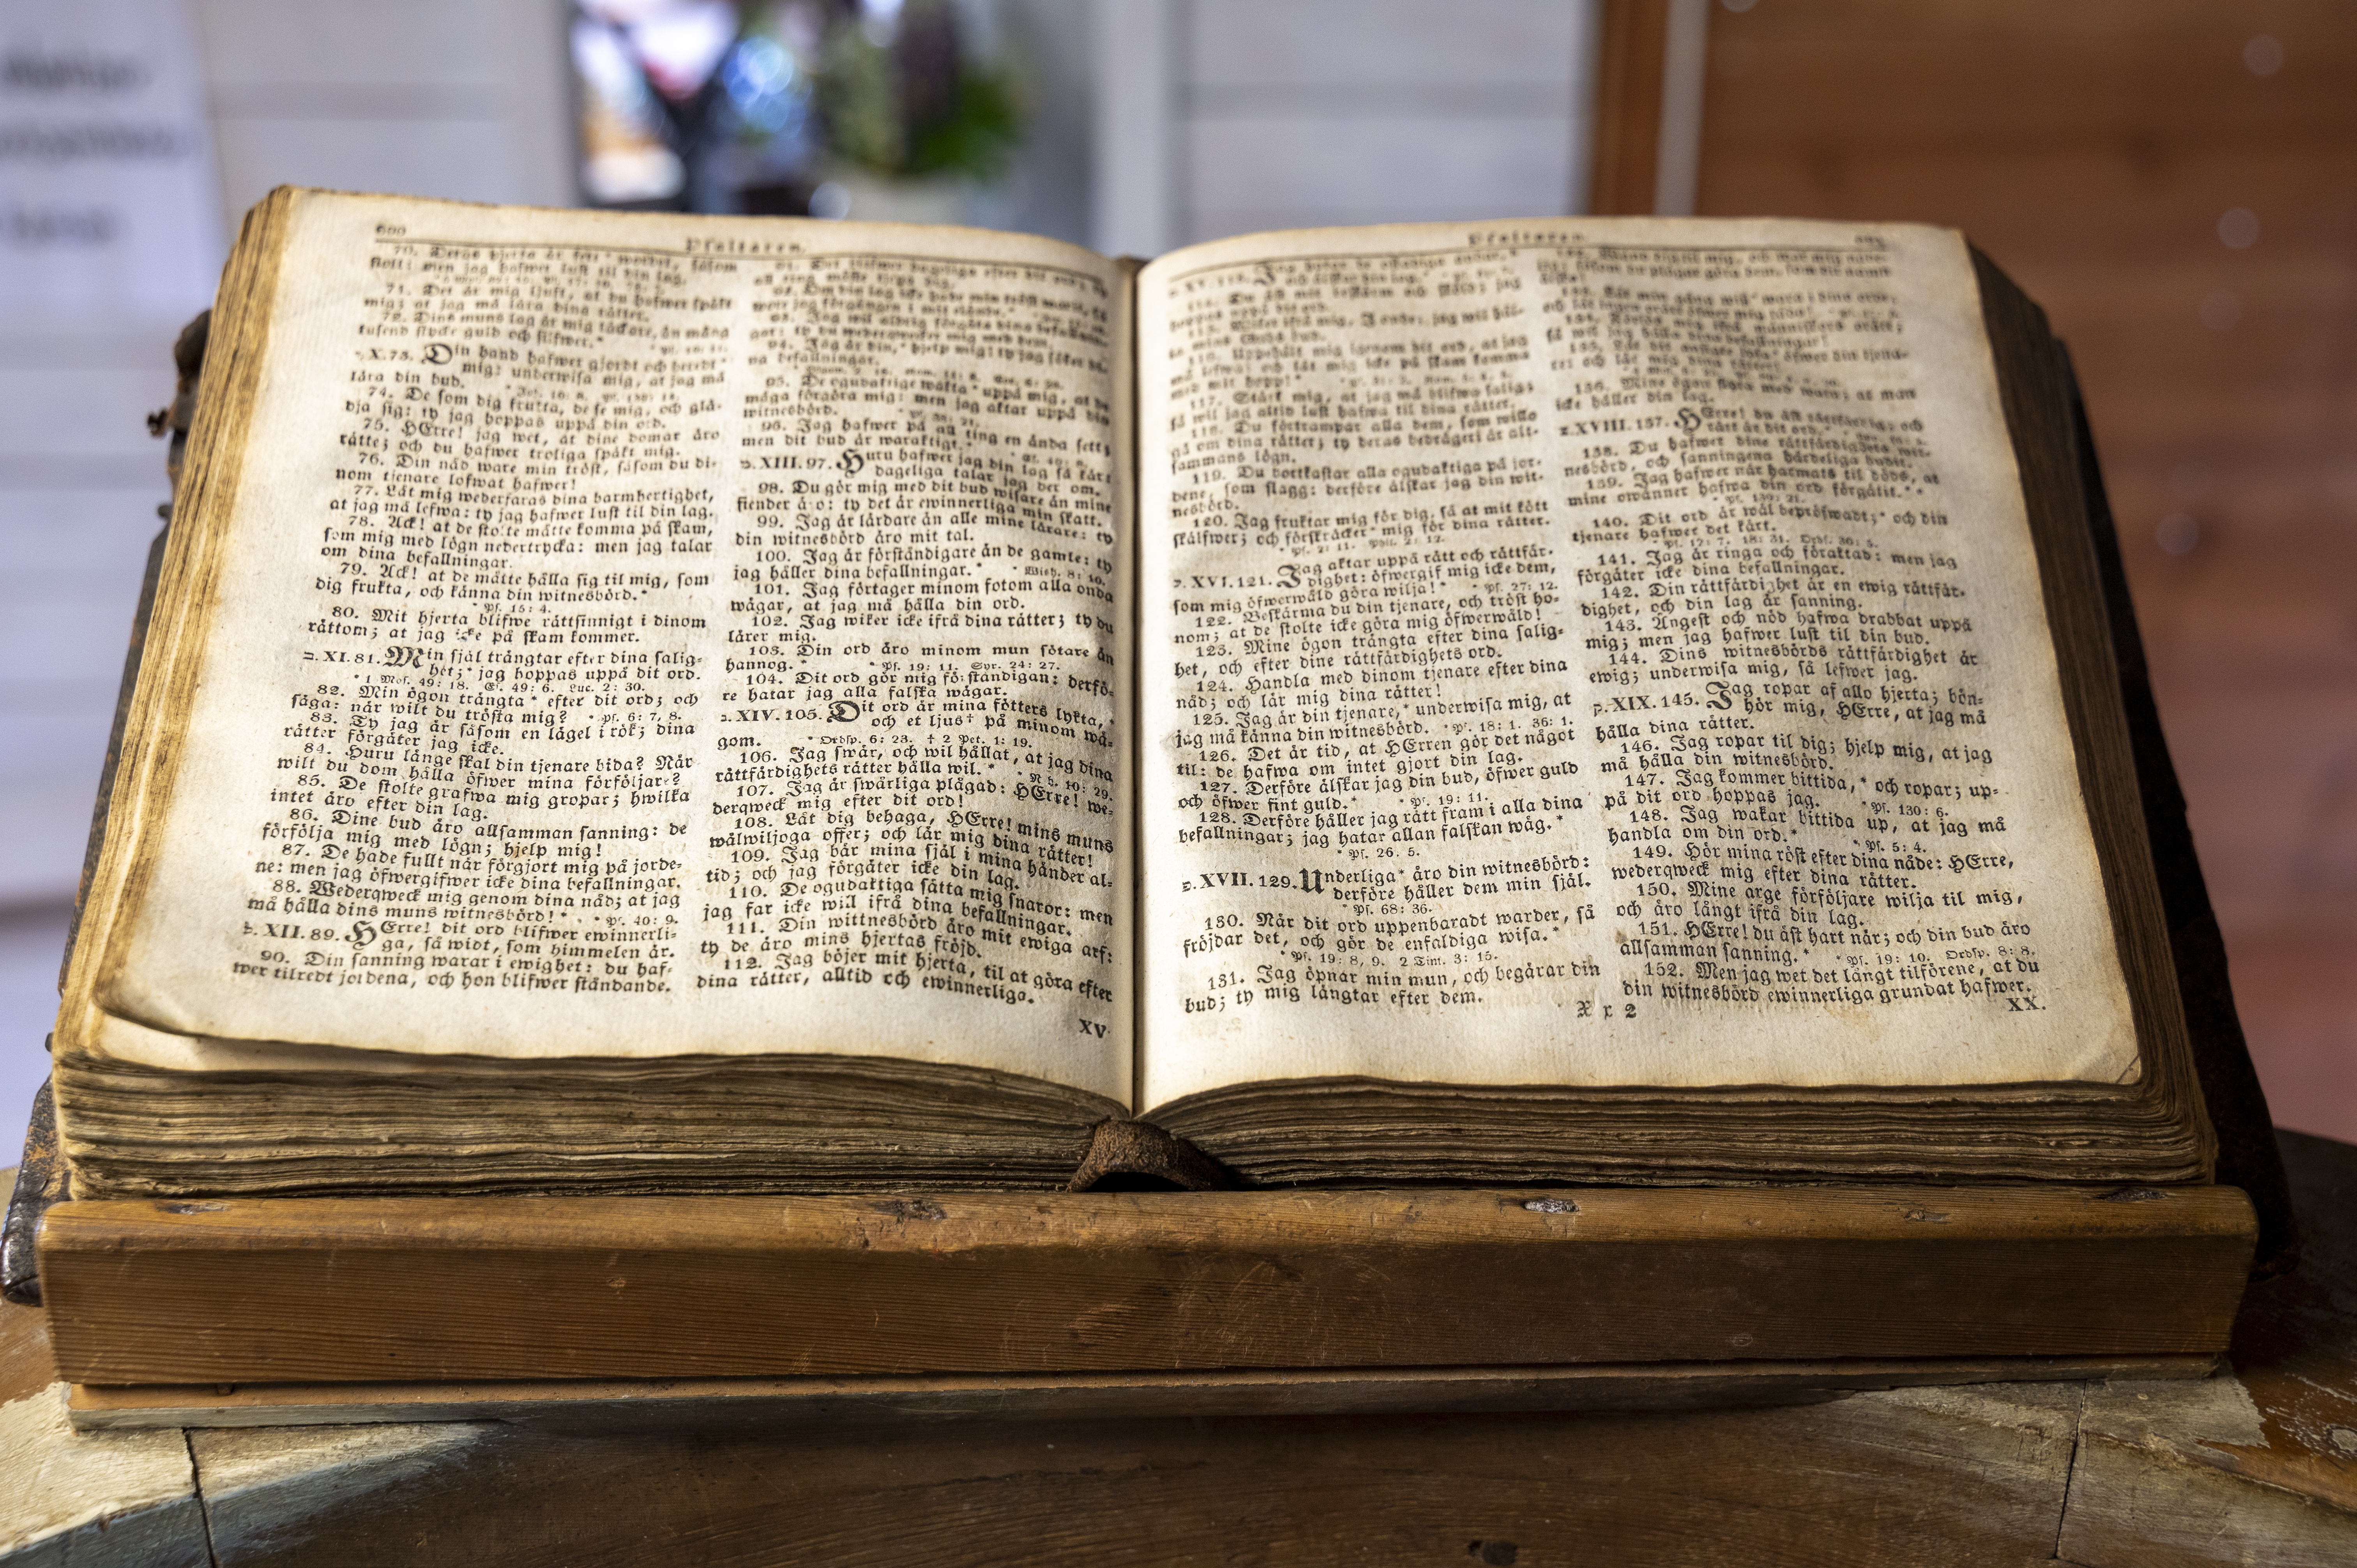 600 Psaltaren.
stolt; men jag hafwer lust til din lag.
71. Det är mig ljuft, at du hafwer späkt
mig; at jag må lära dina rätter.
72. Dins muns lag är mig täckare, än mång
tusend stycke guld och silfwer.*
X. 73. Din hand hafwer gjordt och beredt*
mig: underwisa mig, at jag må
lära din bud.
74. De som dig frukta, de se mig, och glä-
dja sig: ty jag hoppas uppå din ord.
75. HErre! jag wet, at dine domar äro
rätte; och du hafwer troliga späkt mig.
76. Din nåd ware min tröst, såsom du di-
nom tjenare lofwat hafwer!
77. Låt mig wederfaras dina barmhertighet,
at jag må lefwa: ty jag hafwer lust til din lag.
78. Ack! at de stolte måtte komma på skam,
som mig med lögn nedertrycka: men jag talar
om dina befallningar.
79. Ack! at de måtte hålla sig til mig, som
dig frukta, och känna din witnesbörd.*
* Ps. 15: 4.
80. Mit hjerta blifwe rättsinnigt i dinom
rättom; at jag icke på skam kommer.
XI. 81. Min själ trängtar efter dina salig-
het;* jag hoppas uppå dit ord.
* 1 Mos. 49: 18. Es. 49: 6. Luc. 2: 30.
82. Min ögon trängta* efter dit ord; och
säga: när wilt du trösta mig? * Ps. 6: 7, 8.
83. Ty jag är såsom en lägel i rök; dina
rätter förgäter jag icke.
84. Huru länge skal din tjenare bida? När
wilt du dom hålla öfwer mina förföljare?
85. De stolte grafwa mig gropar; hwilka
intet äro efter din lag.
86. Dine bud äro allsamman sanning: de
förfölja mig med lögn; hjelp mig!
87. De hade fullt när förgjort mig på jorde-
ne: men jag öfwergifwer icke dina befallningar.
88. Wederqweck mig genom dina nåd; at jag
må hålla dins muns witnesbörd!* * Ps. 40: 9.
XII. 89. HErre! dit ord blifwer ewinnerli-
ga, så widt, som himmelen är.
90. Din sanning warar i ewighet: du haf-
wer tilredt jordena, och hon blifwer ståndande.
94. Jag är din,* hjelp mig; ty jag söker di-
na befallningar.
95. De ogudaktige wakta* uppå mig, at de
måga förgöra mig: men jag aktar uppå din
witnesbörd.
96. Jag hafwer på all ting en ända sett;
men dit bud är waraktigt.*
XIII. 97. Huru hafwer jag din lag så kärt
dageliga talar jag der om.
98. Du gör mig med dit bud wisare än mine
fiender äro: ty det är ewinnerliga min skatt.
99. Jag är lärdare än alle mine lärare: ty
din witnesbörd äro mit tal.
100. Jag är förståndigare än de gamle: ty
jag håller dina befallningar.* * Wish. 8: 10.
101. Jag förtager minom fotom alla onda
wägar, at jag må hålla din ord.
102. Jag wiker icke ifrå dina rätter; ty du
lärer mig.
103. Din ord äro minom mun sötare än
hannog.* * Ps. 19: 11. Syr. 24: 27.
104. Dit ord gör mig förståndigan: derfö-
re hatar jag alla falska wägar.
XIV. 105. Dit ord är mina fötters lykta,*
och et ljus† på minom wä-
gom. * Ordsp. 6: 23. † 2 Pet. 1: 19.
106. Jag swär, och wil hållat, at jag dina
rättfärdighets rätter hålla wil.* * Neh. 10: 29.
107. Jag är swärliga plågad: HErre! we-
derqweck mig efter dit ord!
108. Låt dig behaga, HErre! mins muns
wälwiljoga offer; och lär mig dina rätter!
109. Jag bär mina själ i mina händer al-
tid; och jag förgäter icke din lag.
110. De ogudaktiga sätta mig snaror: men
jag far icke will ifrå dina befallningar.
111. Din wittnesbörd äro mit ewiga arf:
ty de äro mins hjertas fröjd.
112. Jag böjer mit hjerta, til at göra efter
dina rätter, alltid och ewinnerliga.
XV.
Psaltaren.
hoppas uppå dit ord.
116. Uppehålt mig igenom dit ord, at jag
må lefwa; och låt mig icke på skam komma
med mit hopp!*
117. Stärk mig, at jag må blifwa salig;
så wil jag altid lust hafwa til dina rätter.
118. Du förtrampar alla dem, som willo
gå om dina rätter; ty deras bedrägeri är alt-
sammans lögn.
119. Du bortkastar alla ogudaktiga på jor-
dene, som slagg: derföre älskar jag din wit-
nesbörd.
120. Jag fruktar mig för dig, så at mit kött
skälfwer; och förskräcker* mig för dina rätter.
* Ps. 2: 11. Phil. 2: 12.
XVI. 121. Jag aktar uppå rätt och rättfär-
dighet: öfwergif mig icke dem,
som mig öfwerwåld göra wilja!* * Ps. 27: 12.
122. Beskärma du din tjenare, och tröst ho-
nom; at de stolte icke göra mig öfwerwåld!
123. Mine ögon trängta efter dina salig-
het, och efter dine rättfärdighets ord.
124. Handla med dinom tjenare efter dina
nåd; och lär mig dina rätter!
125. Jag är din tjenare,* underwisa mig, at
jag må känna din witnesbörd. * Ps. 18: 1. 36: 1.
126. Det är tid, at HErren gör det något
til: de hafwa om intet gjort din lag.
127. Derföre älskar jag din bud, öfwer guld
och öfwer fint guld.* * Ps. 19: 11.
128. Derföre håller jag rätt fram i alla dina
befallningar; jag hatar allan falskan wäg.*
* Ps. 26. 5.
XVII. 129. Underliga* äro din witnesbörd:
derföre håller dem min själ.
* Ps. 68: 36.
130. När dit ord uppenbaradt warder, så
fröjdar det, och gör de enfaldiga wisa.*
* Ps. 19: 8, 9. 2 Tim. 3: 15.
131. Jag öpnar min mun, och begärar din
bud; ty mig långtar efter dem.
X x 2
136. Mine ögon flyta med watn; at man
icke håller din lag.
XVIII. 137. HErre! du äst rättfärdig; och
rätt är dit ord.*
138. Du hafwer dine rättfärdighets wit-
nesbörd, och sanningena hårdeliga budit.
139. Jag hafwer när harmats til döds, at
mine owänner hafwa din ord förgätit.*
140. Dit ord är wäl bepröfwadt;* och din
tjenare hafwer det kärt.
* Ps. 12: 7. 18: 31. Ords. 30: 5.
141. Jag är ringa och föraktad: men jag
förgäter icke dina befallningar.
142. Din rättfärdighet är en ewig rättfär-
dighet, och din lag är sanning.
143. Angest och nöd hafwa drabbat uppå
mig; men jag hafwer lust til din bud.
144. Dins witnesbörds rättfärdighet är
ewig; underwisa mig, så lefwer jag.
XIX. 145. Jag ropar af allo hjerta; bön-
hör mig, HErre, at jag må
hålla dina rätter.
146. Jag ropar til dig; hjelp mig, at jag
må hålla din witnesbörd.
147. Jag kommer bittida,* och ropar; up-
på dit ord hoppas jag. * Ps. 130: 6.
148. Jag wakar bittida up, at jag må
handla om din ord.* * Ps. 5: 4.
149. Hör mina röst efter dina nåde: HErre,
wederqweck mig efter dina rätter.
150. Mine arge förföljare wilja til mig,
och äro långt ifrå din lag.
151. HErre! du äst hart när; och din bud äro
allsamman sanning.* * Ps. 19: 10. Ordsp. 8: 8.
152. Men jag wet det långt tilförene, at du
din witnesbörd ewinnerliga grundat hafwer.
XX.